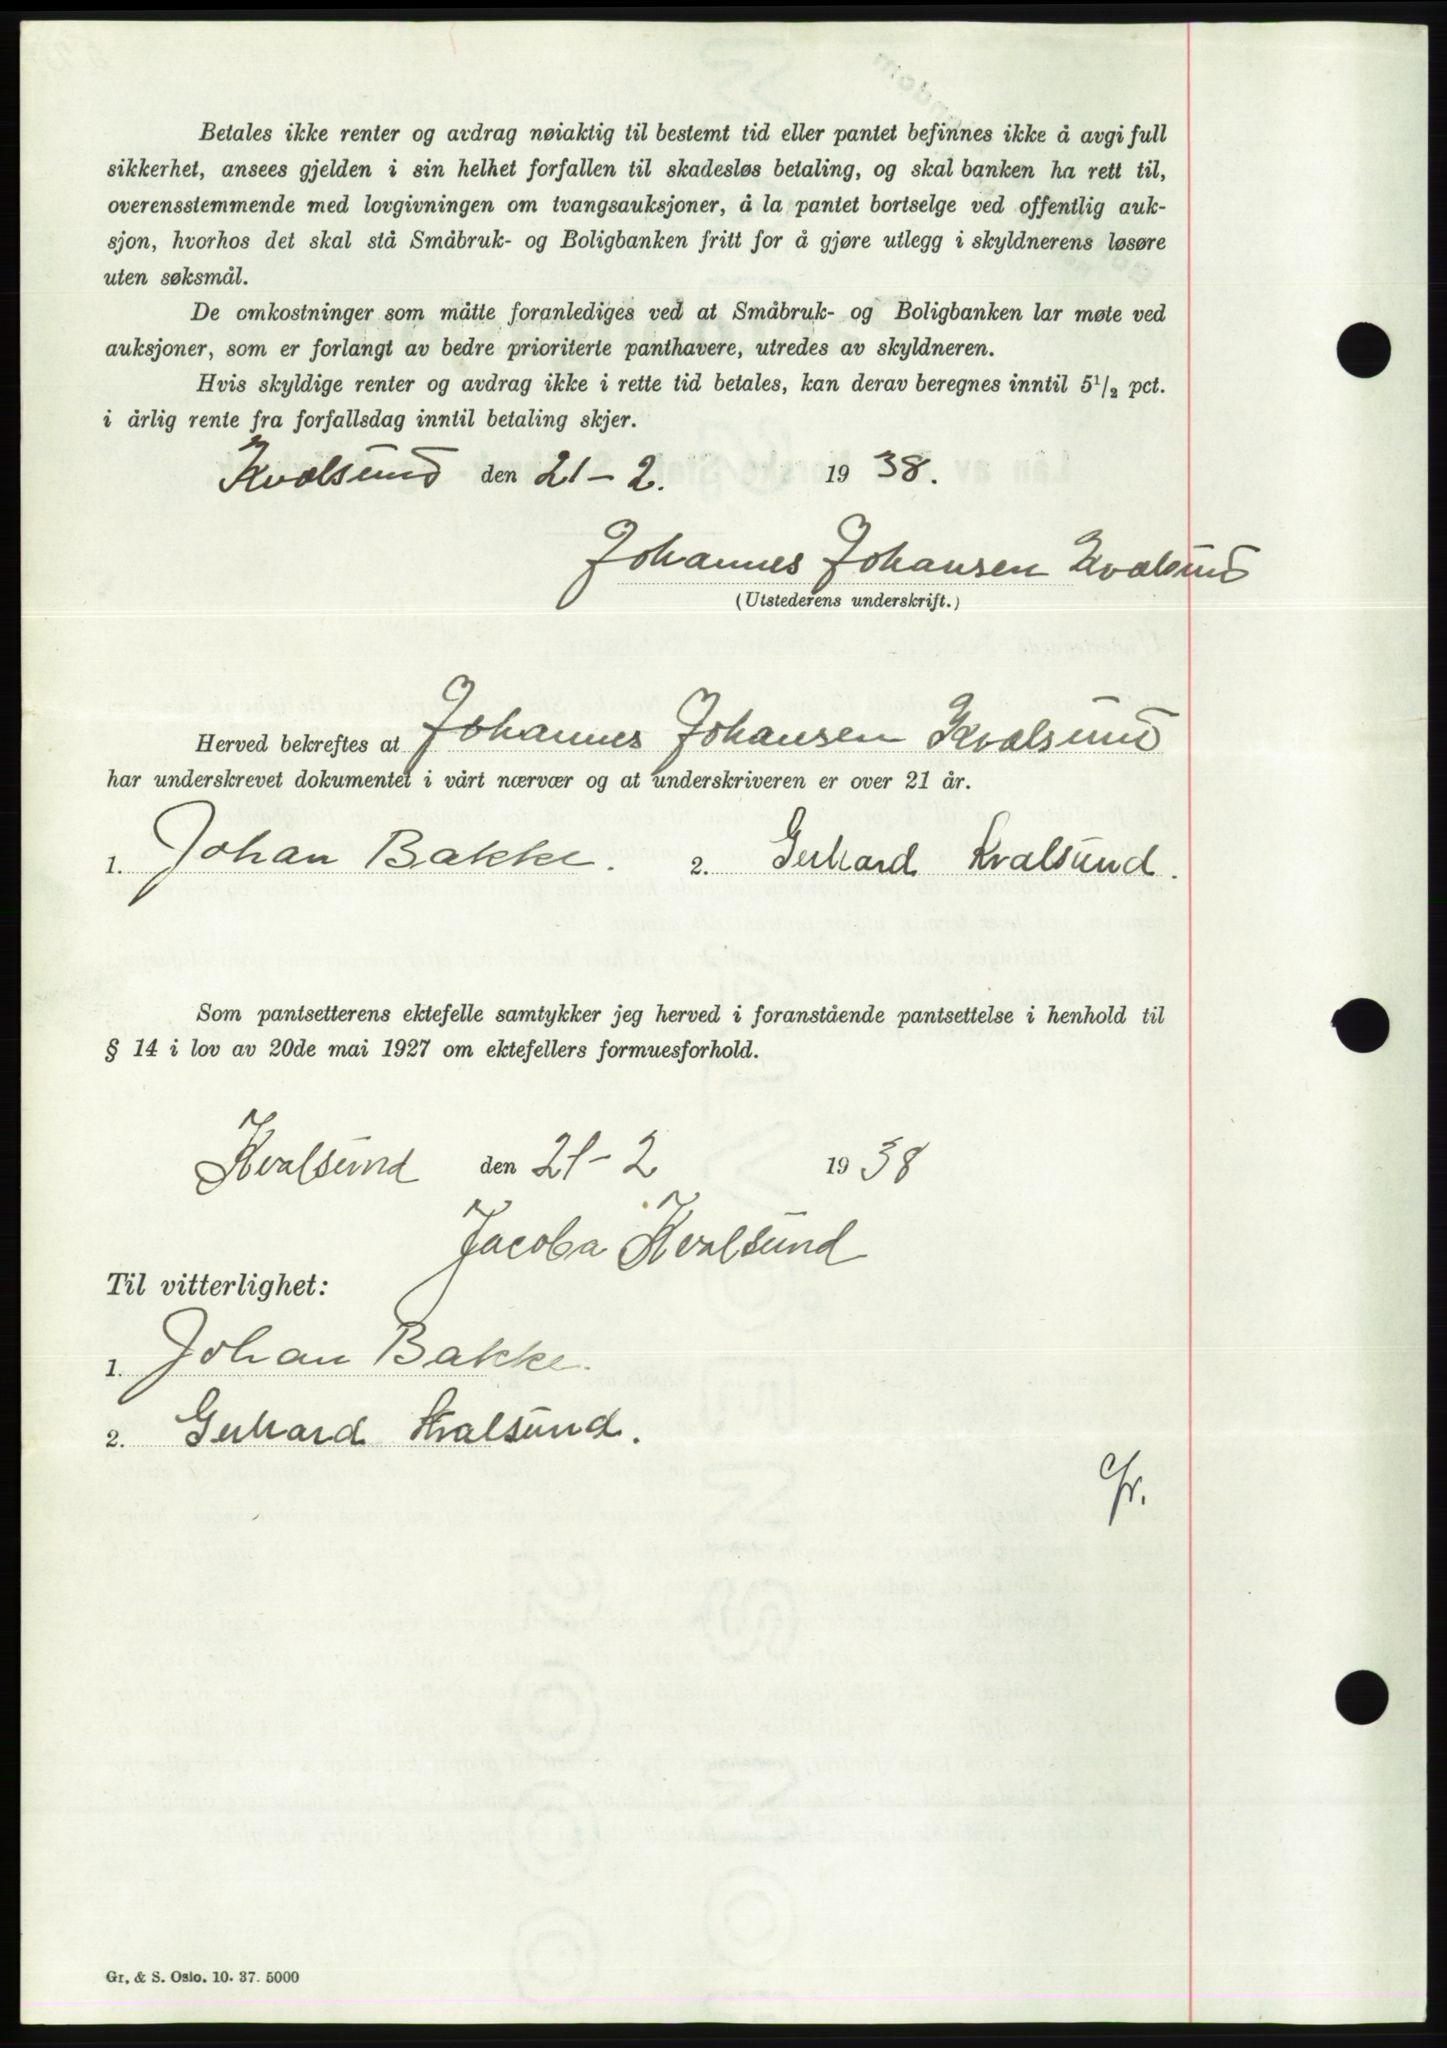 Betales ikke renter og avdrag nøiaktig til bestemt tid eller pantet befinnes ikke å avgi full
sikkerhet, ansees gjelden i sin helhet forfallen til skadesløs betaling, og skal banken ha rett til,
overensstemmende med lovgivningen om tvangsauksjoner, å la pantet bortselge ved offentlig auk-
sjon, hvorhos det skal stå Småbruk- og Boligbanken fritt for å gjøre utlegg i skyldnerens løsøre
uten søksmål.
De omkostninger som måtte foranlediges ved at Småbruk- og Boligbanken lar møte ved
auksjoner, som er forlangt av bedre prioriterte panthavere, utredes av skyldneren.
Hvis skyldige renter og avdrag ikke i rette tid betales, kan derav beregnes inntil 5 1/2 pct.
i årlig rente fra forfallsdag inntil betaling skjer.
Kvalsund den 21-2. 1938.
Johannes Johansen Kvalsund
(Utstederens underskrift.)
Herved bekreftes at Johannes Johansen Kvalsund
har underskrevet dokumentet i vårt nærvær og at underskriveren er over 21 år.
1. Johan Bakke. 2. Gerhard Kvalsund.
Som pantsetterens ektefelle samtykker jeg herved i foranstående pantsettelse i henhold til
§ 14 i lov av 20de mai 1927 om ektefellers formuesforhold.
Kvalsund den 21-2 1938
Jacoba Kvalsund
Til vitterlighet:
1. Johan Bakke.
2. Gerhard Kvalsund.
Gr. & S. Oslo. 10. 37. 5000